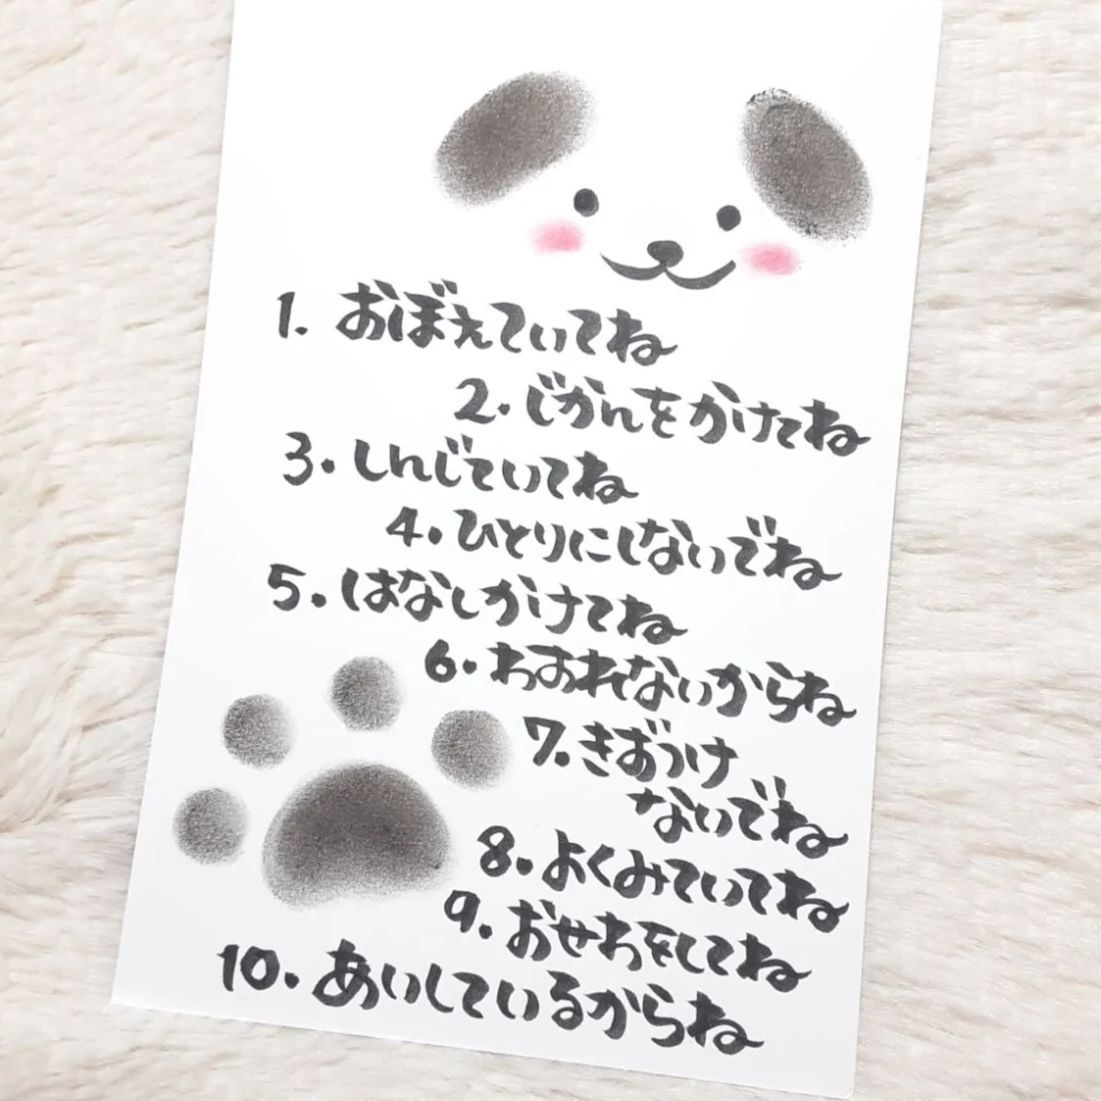 1. おぼえていてね
2. じかんをかけてね
3. しんじていてね
4. ひとりにしないでね
5. はなしかけてね
6. わすれないからね
7. きずつけ
ないでね
8. よくみていてね
9. おせわをしてね
10. あいしているからね